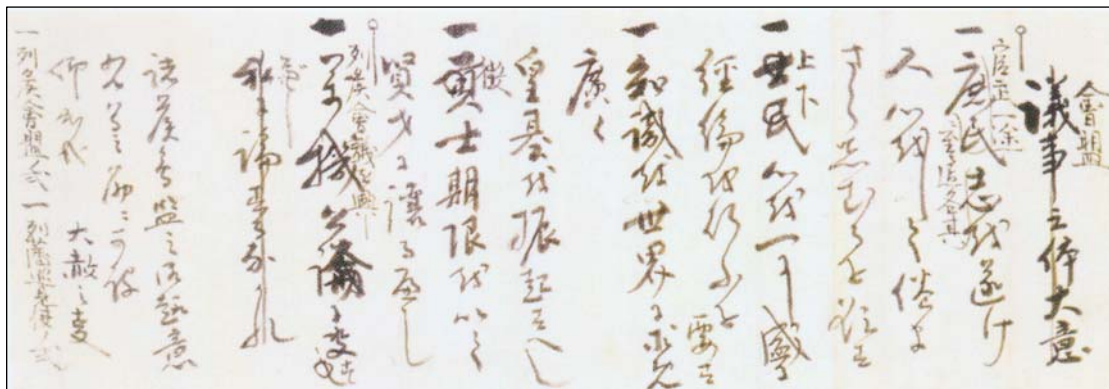 會盟
議事之体大意
官武一途
一庶民志を遂け
人心をして倦ま
さらしむるを欲す
上下
一士民心を一にし盛に
經綸を行ふを要す
一知識を世界に求め
廣く
皇基を振起すへし
徴
一貢士期限を以て
賢才に讓るへし
列侯會議を興し
一万機公論に决し
私に論するなかれ
諸侯會盟之御趣意
右等之筋ニ可被
仰出哉
大赦之事
一列侯會盟ノ式
一列藩巡見使ノ式